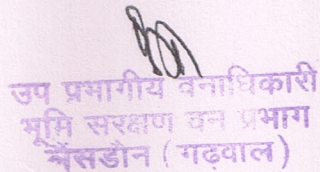 उप प्रभागीय वनाधिकारी
भूमि सरक्षण वन प्रभाग
लैंसडौन (गढ़वाल)